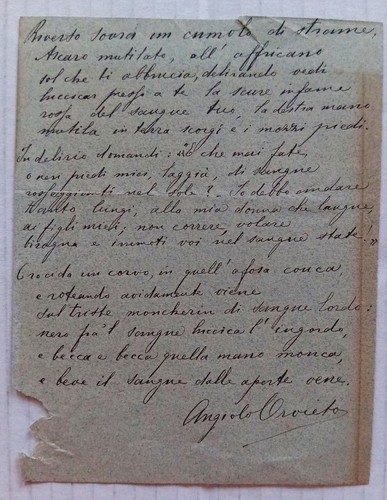 Riverso sovra un cumolo di strame,
Ascaro mutilato, all' affricano
sol che ti abbrucia, delirando vedi
luccicar presso a te la scure infame
rossa del sangue tuo, la destra mano
mutila in terra scorgi e i mozzi piedi.
In delirio domandi: « che mai fate,
o neri piedi miei, laggiù, di sangue
rosseggianti nel sole? – Io debbo andare
tanto lungi, alla mia donna che langue,
ai figli miei; non correre, volare
bisogna e immoti voi nel sangue state! »
Crocida un corvo, in quell' afosa conca,
e roteando avidamente viene
sul triste moncherin di sangue lordo:
nero fra 'l sangue luccica l' ingordo,
e becca e becca quella mano monca,
e beve il sangue dalle aperte vene.
Angiolo Orvieto